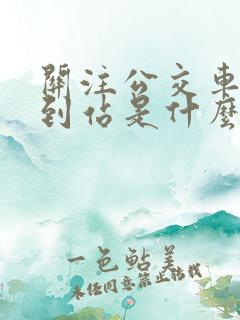 關注公交車
到佔是什麼
一色鮎美
未经同意禁止转载